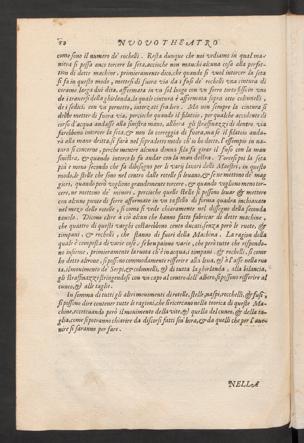 52 NVOVO THEATRO
come sono il numero de' rochelli. Resta dunque che noi vediamo in qual ma-
niera si possa anco torcere la seta, acciochè non manchi alcuna cosa alla perfet-
tion di dette machine; primieramente dico, che quando si vuol intorcer la seta
si fa in questo modo, mettesi di fuora via da i fusi de' rochelli una cintura di
corame larga dui dita, affirmata in vn sol luogo con vn ferro torto fisso in vna
de i trauersi della ghirlanda, la qual cintura è affirmata sopra otto colonnelli,
de i sodici, con vn pernetto, interzate fra loro. Ma non sempre la cintura si
debbe metter di fuora via, perciochè quando il filatoio, per qualche accidente di
corso d'acqua andasse alla sinistra mano, allhora gli straffinazzi di dentro via
farebbono intorcer la seta, & non la correggia di fuora, ma se il filatoio anda-
rà alla mano dritta, si farà nel sopradetto modo ch' io ho detto, l'essempio in na-
tura si conserua, perchè mentre alcuna donna fila fa girar il fuso con la man
sinistra, & quando intorce lo fa andar con la man destra. Torcesi poi la seta
più e meno secondo che fa dibisogno per li varij lauori delli Maestri, in questo
modo, le stelle che sono nel centro dalle rotelle si leuano, & se ne mettono de' mag
giori, quando però vogliono grandemente torcere, & quando vogliono meno tor-
cere, ne mettono de' minori, perciochè quelle stelle si possono leuar & mettere
con alcune ponte di ferro affirmate in vn tassello di forma quadra inchiauate
nel mezo delle rotelle, si come si vede chiaramente nel dissegno della seconda
tauola. Dicono oltre a ciò alcun che hanno fatto fabricar di dette machine,
che quattro di questi varghi costarebbono cento ducati, senza però le ruote, &
timpani, & rochelli, che fanno di fuori della Machina. La ragion della
quale è composta di varie cose, se ben paiono varie, che però tutte che rispondo-
no insieme, primieramente la ruota che è in acqua, i timpani, & rochelli, si come
ho detto altroue, si possono commodamente riferire alla leua, & a l'asse nella ruo
ta, il mouimento de' Serpi, & colonnelli, & di tutta la ghirlanda, alla bilancia,
gli straffinazzi stringendosi con vn capo al contro delli albero, si possono riferire al
cuneo, & alle taglie.
In somma di tutti gli altri mouimenti di rotelle, stelle, naspi, rocchelli, & fusi,
si possono dire contener tutte le ragioni, che si ricercano nella teorica di queste Ma-
chine, eccettuando però il mouimento della vite, & quello del cuneo, & della ta-
glia, come si potranno chiarire da discorsi fatti sin hora, & da quelli che per l'auue-
nire si faranno per fare.
NELLA